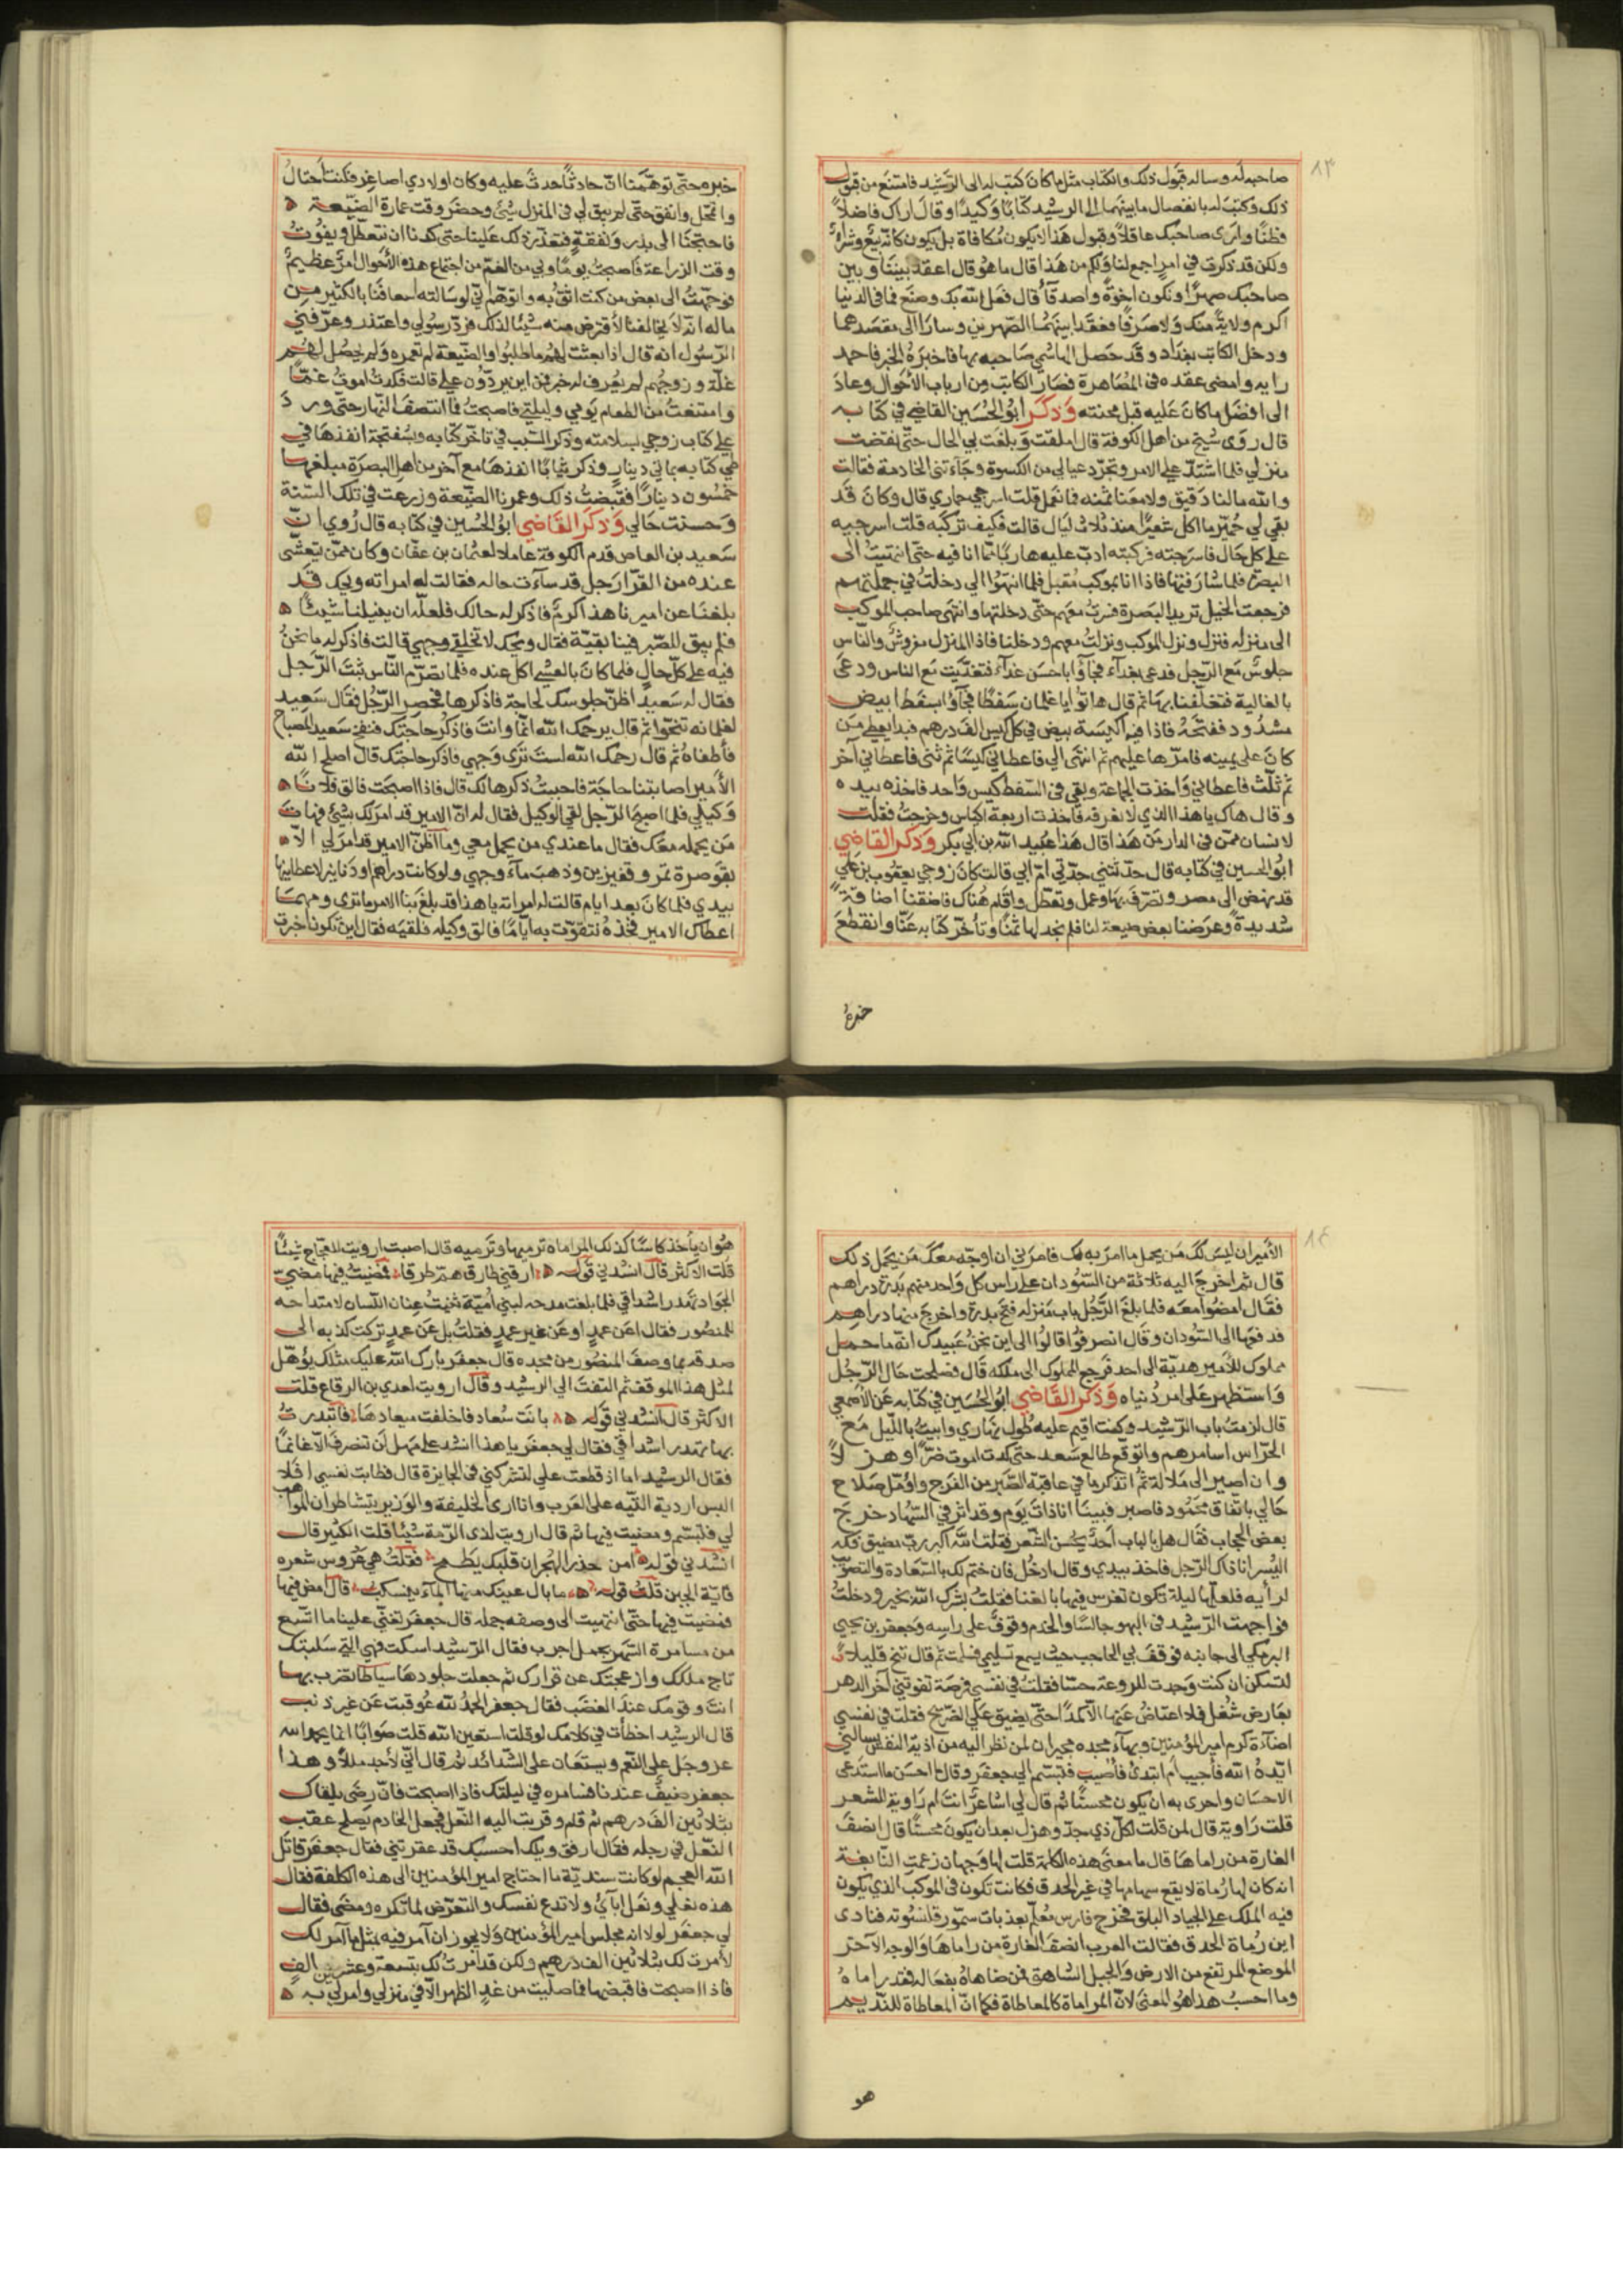 ٨٣
صاحبه له وساله قبول ذلك والكتاب مثل ما كان كتب له الى الرشيد فامتنع من قبول
ذلك وكتب له بانفصال ما بينهما الى الرشيد كتابًا وكيدًا وقال اراك فاضلاً
فطنًا وارى صاحبك عاقلا وقبول هذا لا يكون مكافاة بل يكون كانه بيع وشرا
ولكن قد ذكرت في امر اجمع لنا ولكم من هذا قال ما هو قال اعقد بيننا وبين
صاحبك صهرًا ونكون اخوة واصدقآ قال فعل الله بك وصنع فما في الدنيا
اكرم ولاية منك ولا صرفًا فعقدا بينهما الصهرين وسارا الى مقصدهما
ودخل الكاتب بغداد وقد حصل الهاشمي صاحبه بها فاخبره الخبر فاحمد
رايه وامضى عقده في المصاهرة فصار الكاتب من ارباب الاحوال وعاد
الى افضل ما كان عليه قبل محنته وذكر ابو الحسين القاضي في كتابه
قال روى شيخ من اهل الكوفة قال املقت وبلغت بي الحال حتى نقضت
منزلي فلما اشتد علي الامر وتجرد عيالي من الكسوة وجآءتني الخادمة فقالت
والله مالنا دقيق ولا معنا ثمنه فما نعمل قلت اسرجي حماري قال وكان قد
بقي لي حمير ما اكل شعيرًا منذ ثلاث ليال قالت فكيف تركبه قلت اسرجيه
على كل حال فاسرجته فركبته ادب عليه هاربًا مما انا فيه حتى انتهيت الى
البصرة فلما شارفتها فاذا انا بموكب مقبل فلما انتهوا الي دخلت في جملتهم
فرجعت الخيل تريد البصرة فسرت معهم حتى دخلتها وانتهى صاحب الموكب
الى منزله فنزل ونزل الموكب ونزلت معهم ودخلنا فاذا المنزل مفروش والناس
جلوس مع الرجل فدعى بغدآء فجآؤا باحسن غدآء فتغديت مع الناس ودعى
بالغالية فتغلفنا بها ثم قال هاتوا يا غلمان سفطًا فجآؤا بسفط ابيض
مشدود ففتحه فاذا فيه اكيسة بيض في كل كيس الف درهم فبدا يعطي من
كان على يمينه فامرها عليهم ثم انتهى الي فاعطاني كيسًا ثم ثنى فاعطاني آخر
ثم ثلث فاعطاني واخذت الجماعة وبقي في السفط كيس واحد فاخذه بيده
وقال هاك يا هذا الذي لا نعرفه فاخذت اربعة اكياس وخرجت فقلت
لانسان ممن في الدار من هذا قال هذا عبيد الله بن ابي بكر وذكر القاضي
ابو الحسين في كتابه قال حدثتني جدتي ام ابي قالت كان زوجي يعقوب بن علي
قد نهض الى مصر وتصرف بها وعمل وتعطل واقام هناك فاضقنا اضاقة
شديدة وعرضنا بعض ضيعة لنا فلم نجد لها ثمنًا وتأخر كتابه عنا وانقطع
خبره
خبره حتى توهمنا ان حادثًا حدث عليه وكان اولادي اصاغر فكنت احتال
وانفق حتى لم يبق لي في المنزل شئ وحضر وقت عمارة الضيعة
فاحتجنا الى بذر ونفقة فتعذر ذلك علينا حتى كدنا ان نتعطل ويفوت
وقت الزراعة فاصبحت يومًا وبي من الغم من اجتماع هذه الاحوال امر عظيم
فوجهت الى بعض من كنت اثق به واتوهم اني لو سالته اسعافنا بالكثير من
ماله انه لا يخالفنا لاقترض منه شيئًا لذلك فرد رسولي واعتذر وعرفني
الرسول انه قال اذا بعثت لهم ما طلبوا والضيعة لم تعمره ولم يحصل لهم
غلة وزوجهم لم يعرف له خبر فمن اين يردون علي قالت فكدت اموت غمًا
وامتنعت من الطعام يومي وليلتي فاصبحت فما انتصف النهار حتى ورد
علي كتاب زوجي بسلامته وذكر السبب في تاخر كتابه وسفتجة انفذها في
طي كتابه بمائتي دينار وذكر ثيابًا انفذها مع آخر من اهل البصرة مبلغها
خمسون دينارًا فقبضت ذلك وعمرنا الضيعة وزرعت في تلك السنة
وحسنت حالي وذكر القاضي ابو الحسين في كتابه قال روي ان
سعيد بن العاص قدم الكوفة عاملا لعثمان بن عفان وكان ممن يتعشى
عنده من القرا رجل قد سآءت حاله فقالت له امراته ويحك قد
بلغنا عن اميرنا هذا كرم فاذكر له حالك فلعله ان ينيلنا شيئًا
فلم يبق للصبر فينا بقية فقال ويحك لا تخلقي وجهي قالت فاذكر له ما نحن
فيه على كل حال فلما كان بالعشي اكل عنده فلما تصرم الناس ثبت الرجل
فقال له سعيد اظن جلوسك لحاجة فاذكرها فحصر الرجل فقال سعيد
لغلمانه تنحوا ثم قال يرحمك الله انما انا وانت فاذكر حاجتك فنفخ سعيد المصباح
فأطفاه ثم قال رحمك الله لست ترى وجهي فاذكر حاجتك قال اصلح الله
الأمير اصابتنا حاجة فاحببت ذكرها لك قال فاذا اصبحت فالق فلانًا
وكيلي فلما اصبح الرجل لقي الوكيل فقال له ان الامير قد امر لك بشئ فهات
من يحمله معك فقال ما عندي من يحمل معي وما اظن الامير قد امر لي الا
بقوصرة تمر وقفيز بر وذهب مآء وجهي ولو كانت دراهم او دنانير لاعطانيها
بيدي فلما كان بعد ايام قالت له امراته يا هذا قد بلغ بنا الامر ما ترى ومهما
اعطاك الامير فخذه نتقوت به ايامًا فالق وكيله فلقيه فقال اين تكون اخبرت
٨٤
الأمير ان ليس لك من يحمل ما امر به لك فامرني ان اوجه معك من يحمل ذلك
قال ثم اخرج اليه ثلاثة من السودان على راس كل واحد منهم بدرة دراهم
فقال امضوا معه فلما بلغ الرجل باب منزله فتح بدرة واخرج منها دراهم
فدفعها الى السودان وقال انصرفوا قالوا الى اين نحن عبيدك انه ما حمل
مملوك للأمير هدية الى احد فرجع المملوك الى ملكه قال فصلحت حال الرجل
واستظهر على امر دنياه وذكر القاضي ابو الحسين في كتابه عن الاصمعي
قال لزمت باب الرشيد وكنت اقيم عليه طول نهاري وابيت بالليل مع
الحراس اسامرهم واتوقع طالع سعد حتى كدت اموت ضرًا وهزلاً
وان اصير الى ملالة ثم اتذكر ما في عاقبة الصبر من الفرج واؤمل صلاح
حالي باتفاق محمود فاصبر فبينا انا ذات يوم وقد اثر في السهاد خرج
بعض الحجاب فقال هل بالباب احد يحسن الشعر فقلت الله اكبر رب مضيق فكه
اليسر انا ذاك الرجل فاخذ بيدي وقال ادخل فان ختم لك بالسعادة والتصويب
لرأيه فلعلها ليلة تكون تغرس فيها بالغنا فقلت بشرك الله بخير ودخلت
فواجهت الرشيد في البهو جالسًا والخدم وقوف على راسه وجعفر بن يحيى
البرمكي الى جانبه فوقف بي الحاجب حيث يسمع تسليمي فسلمت ثم قال تنح قليلا
لتسكن ان كنت وجدت للروعة حسًا فقلت في نفسي فرصة تفوتني آخر الدهر
بعارض شغل فلا اعتاض عنها الا كمدًا حتى يضيق علي الضريح فقلت في نفسي
اضآءة كرم امير المؤمنين وبهآء مجده مجيران لمن نظر اليه من اذية النفس يسالني
ايده الله فأجيب ام ابتدئ فأصيب فتبسم الي جعفر وقال احسن ما استدعى
الاحسان واحرى به ان يكون محسنًا ثم قال لي اشاعر انت ام راوية الشعر
قلت راوية قال لمن قلت لكل ذي جد وهزل بعد ان يكون محسنًا قال انصف
القارة من راماها قال ما معنى هذه الكلمة قلت لها وجهان زعمت النابغة
انه كان لها رماة لا يقع سهامها في غير الحدق فكانت تكون في الموكب الذي يكون
فيه الملك على الجياد البلق فخرج فارس معلم بعذبات سمور قلنسوته فنادى
اين رماة الحدق فقالت العرب انصف القارة من راماها والوجه الآخر
الموضع المرتفع من الارض والجبل الشاهق فمن ضاهاه بفعاله فقد راماه
وما احسب هذا هو المعنى لان المراماة كالمعاطاة فكما ان المعاطاة للنديم
هو
هو ان يأخذ كاسًا كذلك المراماة ترميها وترميه قال اصبت ارويت للعجاج شيئًا
قلت الاكثر قال انشدني قوله ارقني طارق هم طرقا فمضيت فيها مضي
الجواد تهدر اشداقي فلما بلغت مدحه لبني امية ثنيت عنان اللسان لامتداحه
للمنصور فقال اعن عمد او عن غير عمد فقلت بل عن عمد تركت كذبه الى
صدقه بما وصف المنصور من مجده قال جعفر بارك الله عليك مثلك يؤهل
لمثل هذا الموقف ثم التفت الي الرشيد وقال ارويت لعدي بن الرقاع قلت
الاكثر قال انشدني قوله بانت سعاد فاخلفت ميعادها فابتدرت
بها تهدر اشداقي فقال لي جعفر يا هذا انشد على مهل لن تنصرف الا غانمًا
فقال الرشيد اما اذ قطعت علي لتشركني في الجايزة قال فطابت نفسي افلا
البس اردية التيه على العرب وانا ارى الخليفة والوزير يتشاطران المواهب
لي فتبسم ومضيت فيها ثم قال ارويت لذي الرمة شيئًا قلت الكثير قال
انشدني قوله امن حذر الهجران قلبك يطمح فقلت هي عروس شعره
قال فآية الجبن قلت قوله ما بال عينك منها المآء ينسكب قال امض فيها
فمضيت فيها حتى انتهيت الى وصفه جمله قال جعفر لتغني علينا ما اتسع
من مسامرة السهر بجمل اجرب فقال الرشيد اسكت فهي التي سلبتك
تاج ملكك وازعجتك عن قرارك ثم جعلت جلودها سياطا تضرب بها
انت وقومك عند الغضب فقال جعفر الحمد لله عوقبت عن غير ذنب
قال الرشيد اخطأت في كلامك لو قلت استعين الله قلت صوابًا انما يحمد الله
عز وجل على النعم ويستعان على الشدائد ثم قال اني لأجد مللاً وهذا
جعفر ضيف عندنا فسامره في ليلتك فاذا اصبحت فان رضي يلقاك
بثلاثين الف درهم ثم قام وقربت اليه النعل فجعل الخادم يصلح عقب
النعل في رجله فقال ارفق ويلك احسبك قد عقرتني فقال جعفر قاتل
الله العجم لو كانت سندية ما احتاج امير المؤمنين الى هذه الكلفة فقال
هذه نعلي ونعل ابآئي ولا تدع نفسك والتعرض لما تكره ومضى فقال
لي جعفر لولا انه مجلس امير المؤمنين ولا يجوز ان آمر فيه بمثل ما آمر لك
لأمرت لك بثلاثين الف درهم ولكن قد امرت لك بتسعة وعشرين الف
فاذا اصبحت فاقبضها فما صليت من غد الظهر الا في منزلي وامر لي به